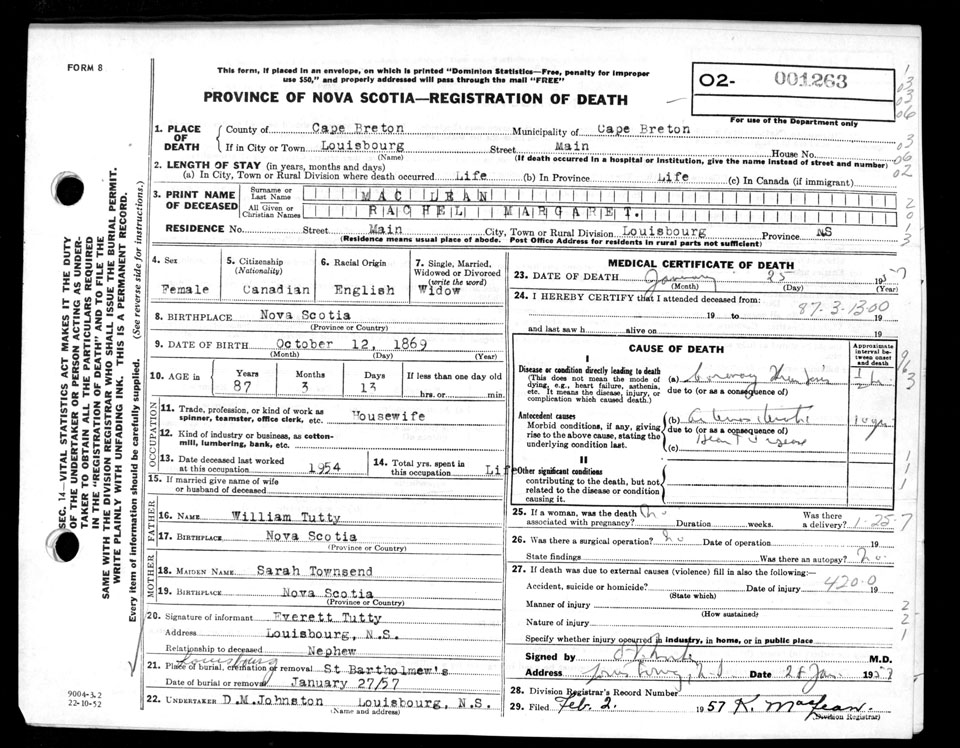 FORM 8
This form, if placed in an envelope, on which is printed "Dominion Statistics—Free, penalty for improper
use $50," and properly addressed will pass through the mail "FREE"
PROVINCE OF NOVA SCOTIA—REGISTRATION OF DEATH
O2- 001263
For use of the Department only
1. PLACE OF DEATH
County of Cape Breton Municipality of Cape Breton
If in City or Town Louisbourg Street Main House No.
(Name) (If death occurred in a hospital or institution, give the name instead of street and number)
2. LENGTH OF STAY (in years, months and days)
(a) In City, Town or Rural Division where death occurred Life (b) In Province Life (c) In Canada (if immigrant)
3. PRINT NAME OF DECEASED
Surname or Last Name MAC LEAN
All Given or Christian Names RACHEL MARGARET.
RESIDENCE No. Street Main City, Town or Rural Division Louisbourg Province NS
(Residence means usual place of abode. Post Office Address for residents in rural parts not sufficient)
4. Sex
Female
5. Citizenship
(Nationality)
Canadian
6. Racial Origin
English
7. Single, Married,
Widowed or Divorced
(write the word)
Widow
8. BIRTHPLACE Nova Scotia
(Province or Country)
9. DATE OF BIRTH October 12, 1869
(Month) (Day) (Year)
10. AGE in
Years Months Days If less than one day old
87 3 13 hrs. or min.
OCCUPATION
11. Trade, profession, or kind of work as
spinner, teamster, office clerk, etc. Housewife
12. Kind of industry or business, as cotton-
mill, lumbering, bank, etc.
13. Date deceased last worked
at this occupation 1954
14. Total yrs. spent in
this occupation Life
15. If married give name of wife
or husband of deceased
FATHER
16. NAME William Tutty
17. BIRTHPLACE Nova Scotia
(Province or Country)
MOTHER
18. MAIDEN NAME Sarah Townsend
19. BIRTHPLACE Nova Scotia
(Province or Country)
20. Signature of informant Everett Tutty
Address Louisbourg, N.S.
Relationship to deceased Nephew
Louisbourg
21. Place of burial, cremation or removal St Bartholmew's
Date of burial or removal January 27/57
22. UNDERTAKER D.M.Johnston Louisbourg, N.S.
(Name and address)
MEDICAL CERTIFICATE OF DEATH
23. DATE OF DEATH January 25 1957
(Month) (Day) (Year)
24. I HEREBY CERTIFY that I attended deceased from:
19 to 87-3-1300 19
and last saw h alive on 19
CAUSE OF DEATH
Approximate interval between onset and death
I
Disease or condition directly leading to death
(This does not mean the mode of
dying, e.g., heart failure, asthenia,
etc. It means the disease, injury, or
complication which caused death.)
(a) Coronary
due to (or as a consequence of)
Antecedent causes
Morbid conditions, if any, giving
rise to the above cause, stating the
underlying condition last.
(b)
due to (or as a consequence of)
(c)
10 yrs
II
Other significant conditions
contributing to the death, but not
related to the disease or condition
causing it.
25. If a woman, was the death
associated with pregnancy? No Duration weeks.
Was there
a delivery? 1-25-7
26. Was there a surgical operation? No Date of operation 19
State findings Was there an autopsy? No.
27. If death was due to external causes (violence) fill in also the following:—
Accident, suicide or homicide? Date of injury 420-0 19
(State which)
Manner of injury
(How sustained)
Nature of injury
Specify whether injury occurred in industry, in home, or in public place
Signed by M.D.
Address Louisbourg, N.S Date 28 Jan. 1957
28. Division Registrar's Record Number
29. Filed Feb. 2. 1957 K. MacLean.
(Division Registrar)
SEC. 14—VITAL STATISTICS ACT MAKES IT THE DUTY
OF THE UNDERTAKER OR PERSON ACTING AS UNDER-
TAKER TO OBTAIN ALL THE PARTICULARS REQUIRED
IN THE "REGISTRATION OF DEATH" AND TO FILE THE
SAME WITH THE DIVISION REGISTRAR WHO SHALL ISSUE THE BURIAL PERMIT.
WRITE PLAINLY WITH UNFADING INK. THIS IS A PERMANENT RECORD.
Every item of information should be carefully supplied. (See reverse side for instructions.)
9004-3.2
22-10-52